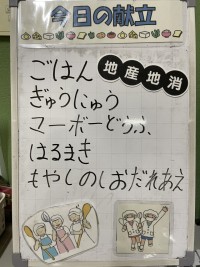 今日の献立
ごはん
地産地消
ぎゅうにゅう
マーボーどうふ
はるまき
もやしのしおだれあえ